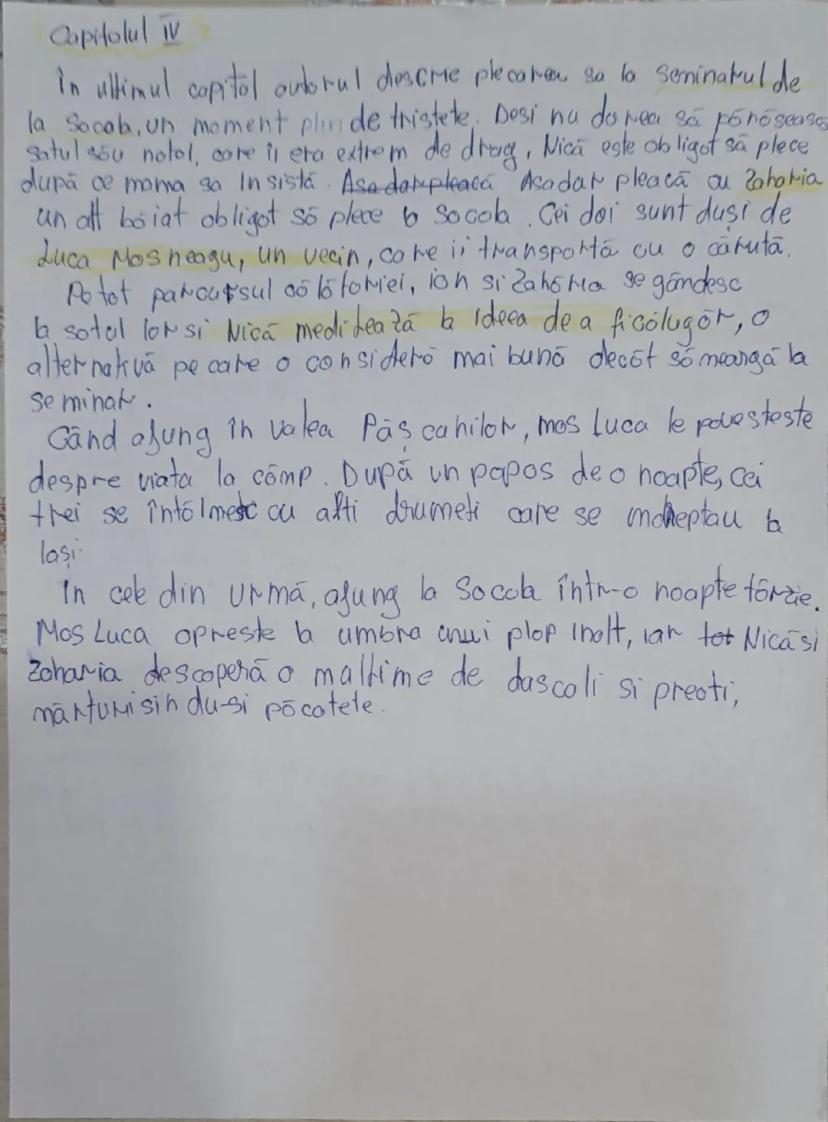 Capitolul IV
În ultimul capitol autorul descrie plecarea sa la Seminarul de
la Socola, un moment plin de tristete. Desi nu dorea să părăsească
satul său natal, care îi era extrem de drag, Nică este obligat să plece
după ce mama sa insistă. Asadar pleacă Asadar pleacă cu Zaharia
un alt băiat obligat să plece la Socola. Cei doi sunt duși de
Luca Mosneagu, un vecin, care ii transportă cu o cărută.
Pe tot parcursul călătoriei, ion si Zaharia se gândesc
la satul lor si Nică meditează la ideea de a fi călugăr, o
alternativă pe care o consideră mai bună decât să meargă la
seminar.
Când ajung în valea Pășcanilor, mos Luca le povesteste
despre viata la câmp. După un papas de o noapte, cei
trei se întâlnesc cu alti drumeti care se indreptau la
Iași.
In cele din urmă, ajung la Socola într-o noapte târzie.
Mos Luca opreste la umbra unui plop inalt, iar tot Nică si
Zaharia descoperă o multime de dascali si preoti,
mărturisindu-si păcatele.